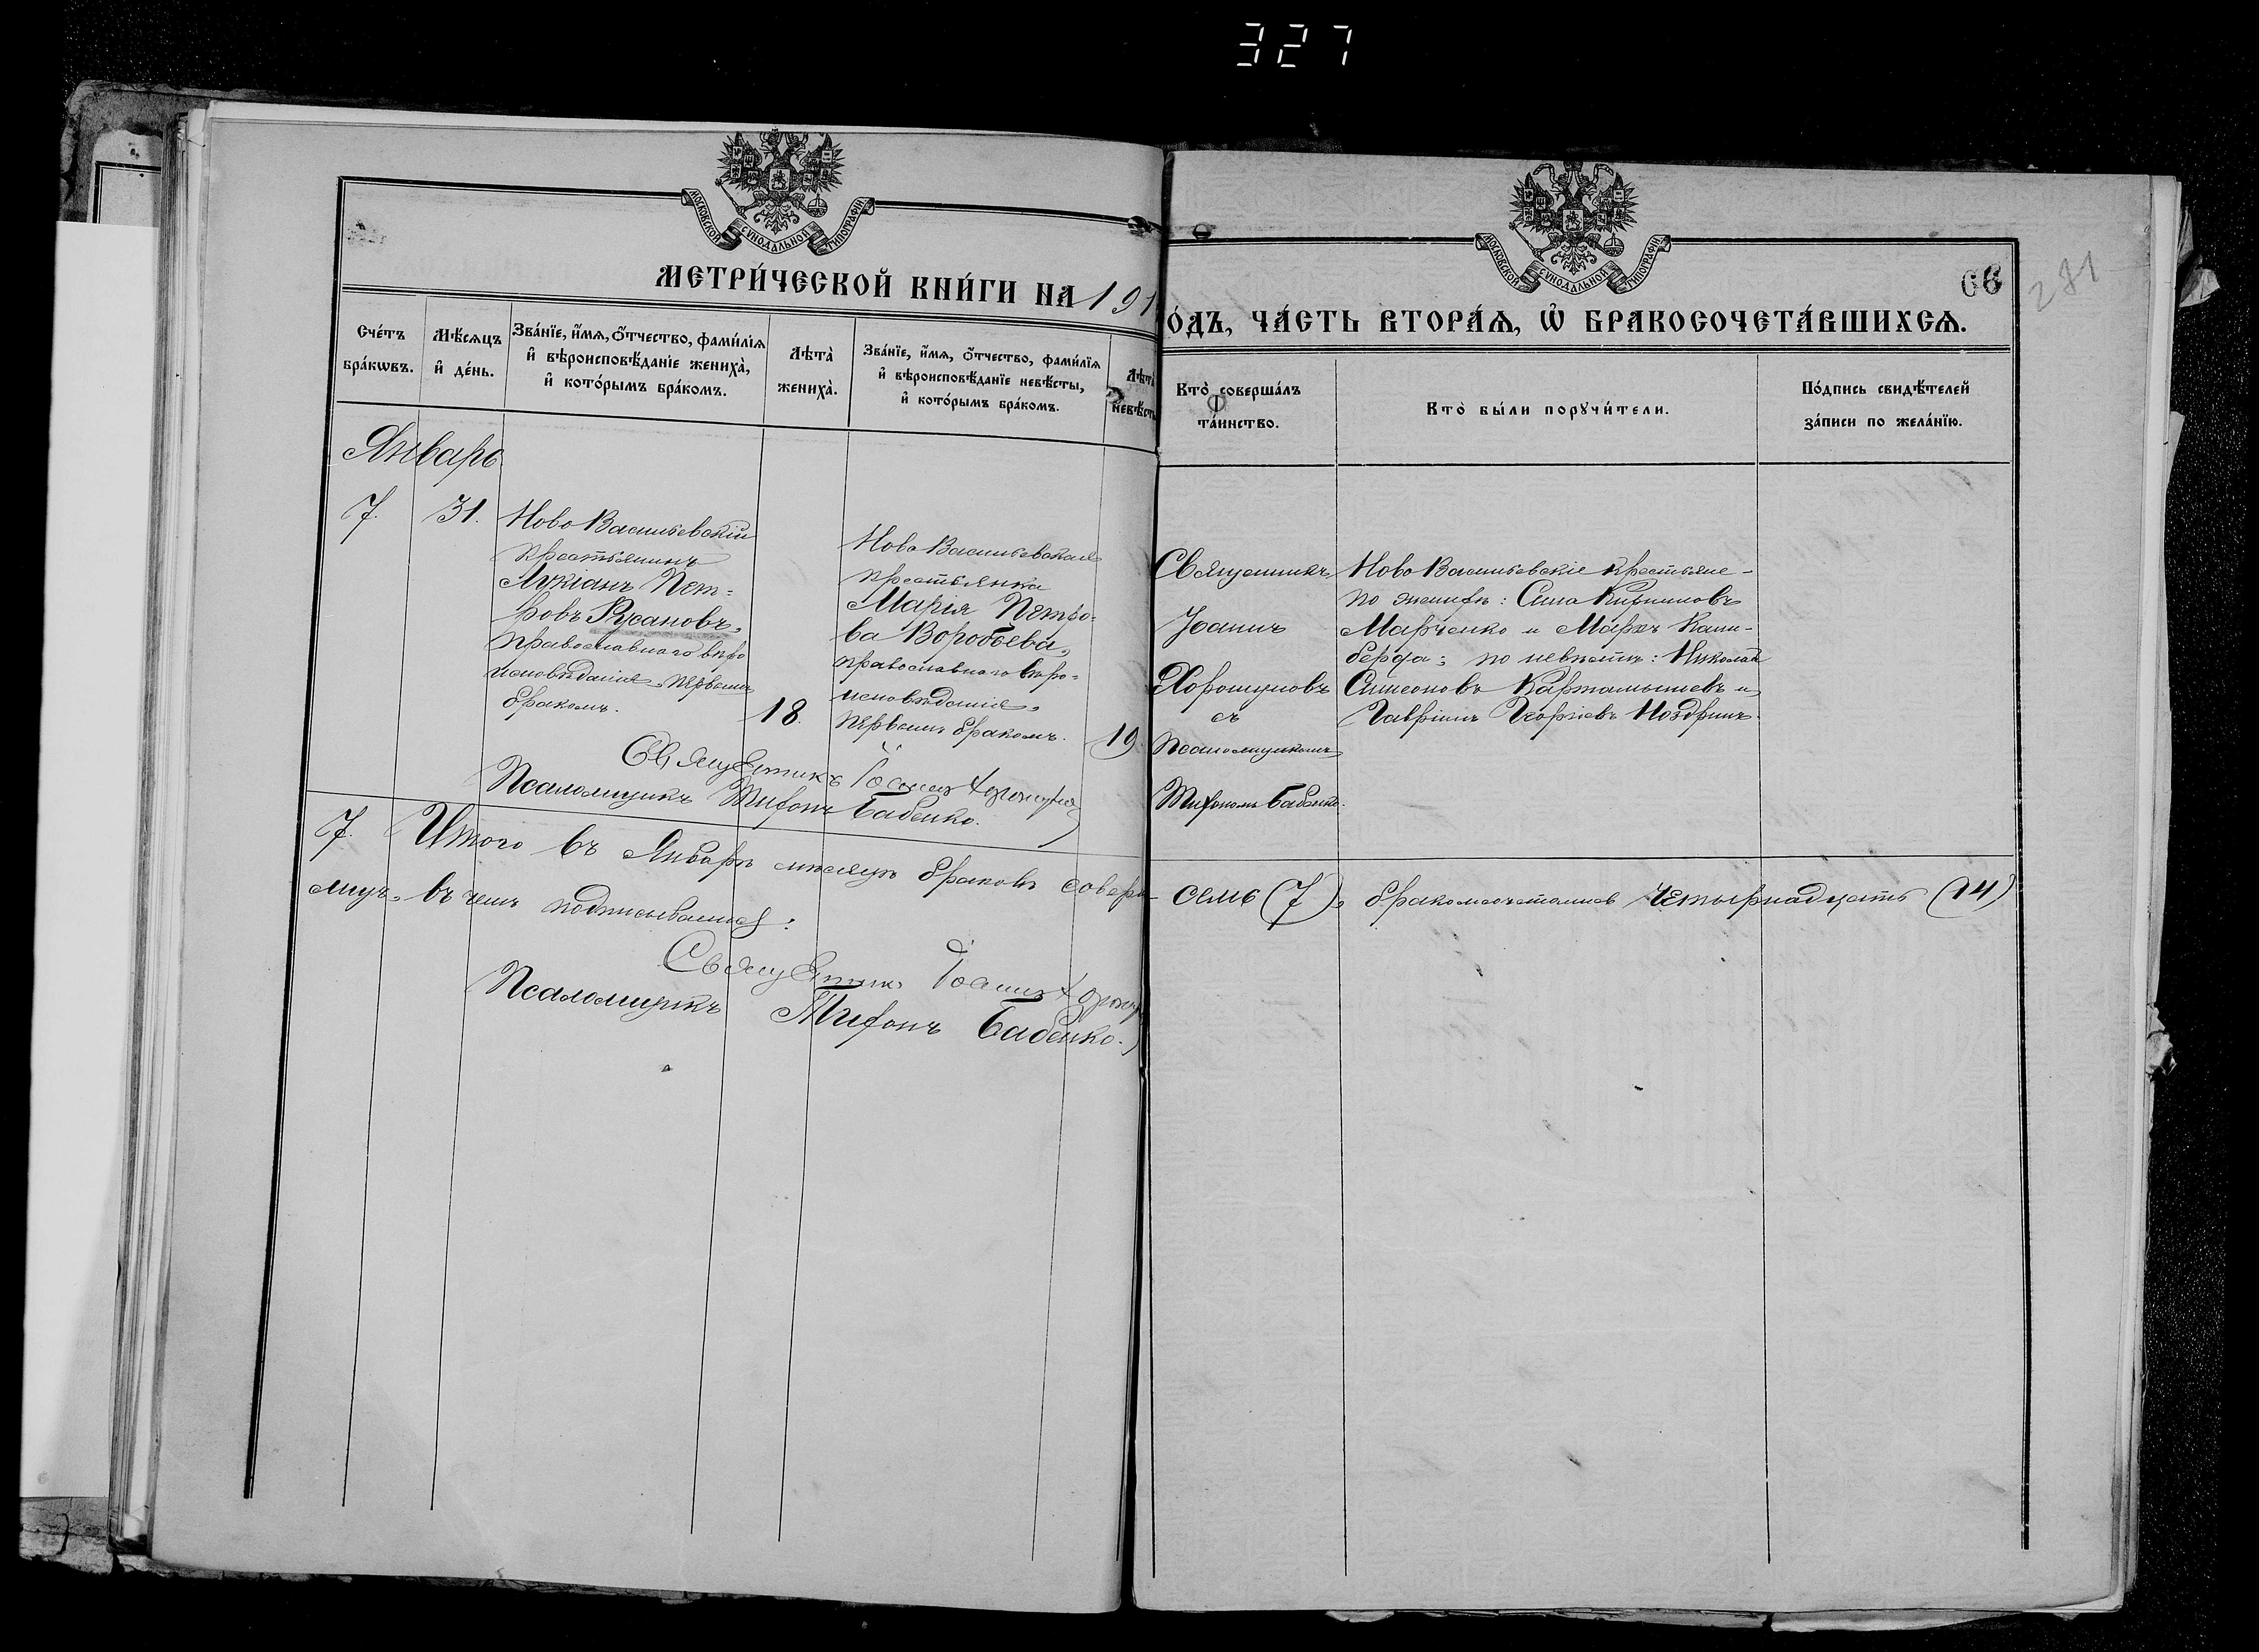 327
МОСКОВСКОЙ СѴНОДАЛЬНОЙ ТИПОГРАФІИ
МОСКОВСКОЙ СѴНОДАЛЬНОЙ ТИПОГРАФІИ
МЕТРИ́ЧЕСКОЙ КНИ́ГИ НА 191
О́ДЪ, ЧА́СТЬ ВТОРА́Ѧ, Ѡ҆ БРАКОСОЧЕТА́ВШИХСѦ.
66
Сче́тъ
бра́кѡвъ.
Мѣ́сѧцъ
и҆ де́нь.
Зва́нїе, и҆́мѧ, ѻ҆́тчество, фами́лїѧ
и҆ вѣроисповѣ́данїе жениха̀,
и҆ кото́рымъ бра́комъ.
Лѣта̀
жениха̀.
Зва́нїе, и҆́мѧ, ѻ҆́тчество, фами́лїѧ
и҆ вѣроисповѣ́данїе невѣ́сты,
и҆ кото́рымъ бра́комъ.
Лѣта
невѣ́сты
Кто̀ соверша́лъ
та́инство.
Кто̀ бы́ли порꙋчи́тели.
По́дпись свидѣ́телей
за́писи по жела́нїю.
Январь
7.
31.
Ново Васильевскій
крестьянинъ
Лукіанъ Пет=
ровъ Русановъ,
православнаго вѣро
исповѣданія, первымъ
бракомъ.
18.
Ново Васильевская
крестьянка
Марія Петро=
ва Воробьева,
православнаго вѣро=
исповѣданія,
первымъ бракомъ.
19.
Священникъ
Іоаннъ
Хорошуновъ
съ
псаломщикомъ
Тифономъ Бабенко.
Ново Васильевскіе крестьяне -
по женихѣ: Сила Кирилловъ
Марченко и Маркъ Кали-
берда; по невѣстѣ: Николай
Симеоновъ Картамышевъ и
Гавріилъ Георгіевъ Ноздринъ.
Священникъ Іоаннъ Хорошунов
Псаломщикъ Тифонъ Бабенко.
7. Итого въ Январѣ мѣсяцѣ браковъ соверш-
семь (7), бракосочетались четырнадцать (14)
лицъ, въ чемъ подписываемся:
Священникъ Іоаннъ Хорошун
Псаломщикъ Тифонъ Бабенко.